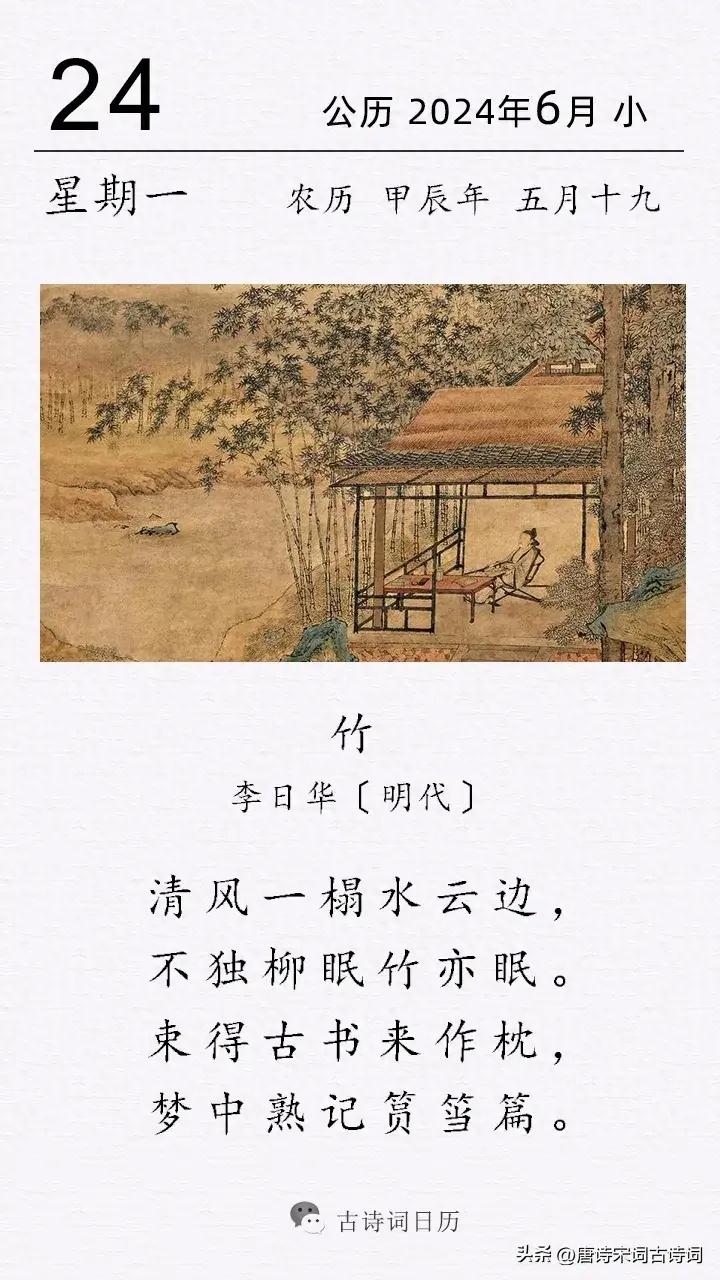 24
公历 2024年6月 小
星期一
农历 甲辰年 五月十九
竹
李日华〔明代〕
清风一榻水云边，
不独柳眠竹亦眠。
束得古书来作枕，
梦中熟记筼筜篇。
古诗词日历
头条 @唐诗宋词古诗词